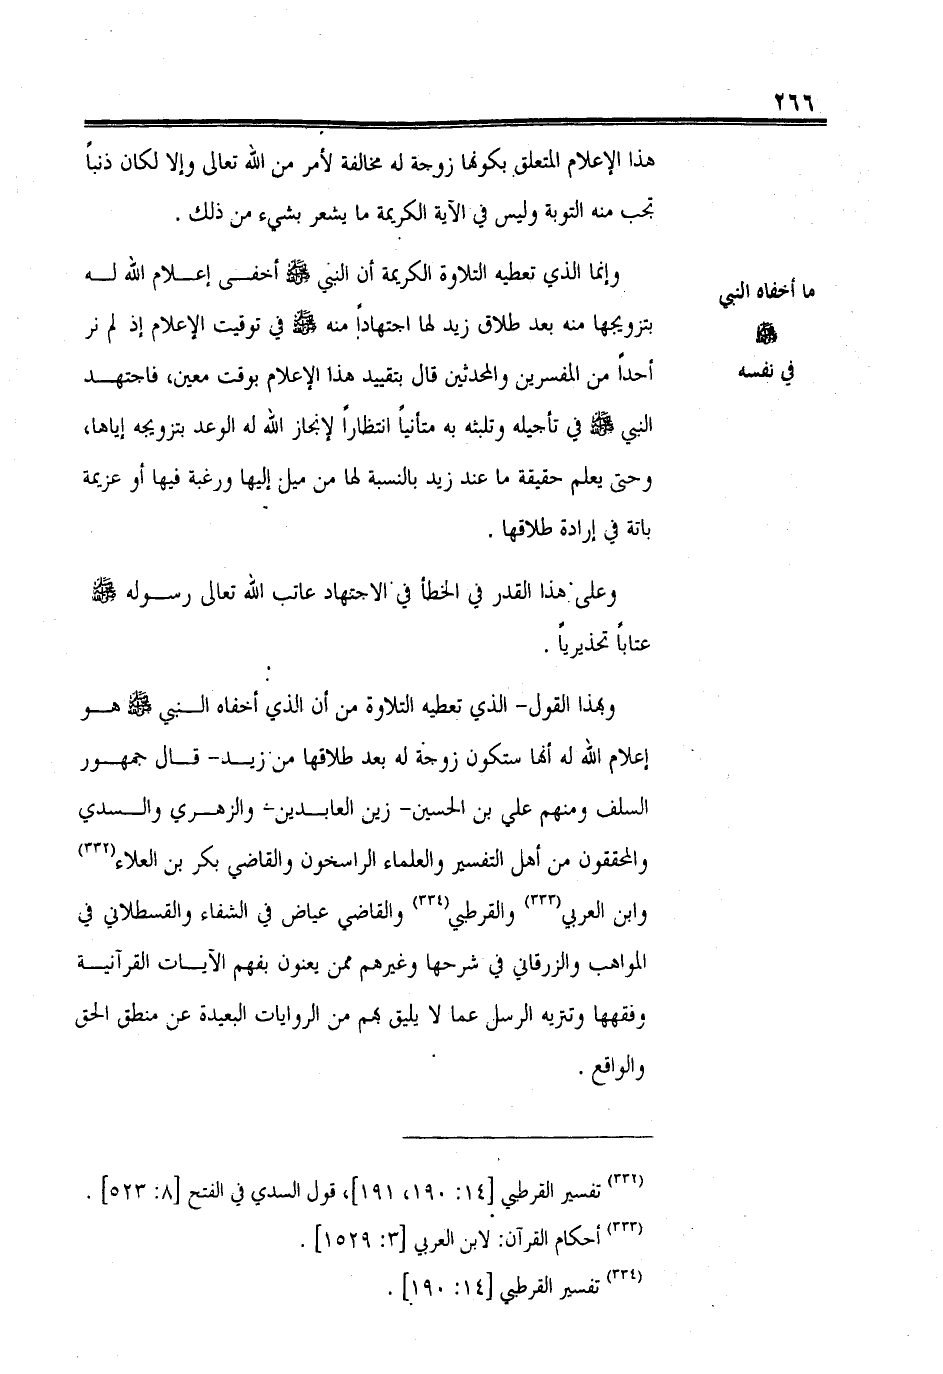 ٢٦٦
هذا الإعلام المتعلق بكونها زوجة له مخالفة لأمر من الله تعالى وإلا لكان ذنباً
تجب منه التوبة وليس في الآية الكريمة ما يشعر بشيء من ذلك .
ما أخفاه النبي
ﷺ
في نفسه
وإنما الذي تعطيه التلاوة الكريمة أن النبي ﷺ أخفــى إعــلام الله لــه
بتزويجها منه بعد طلاق زيد لها اجتهاداً منه ﷺ في توقيت الإعلام إذ لم نر
أحداً من المفسرين والمحدثين قال بتقييد هذا الإعلام بوقت معين، فاجتهــد
النبي ﷺ في تأجيله وتلبثه به متأنياً انتظاراً لإنجاز الله له الوعد بتزويجه إياها،
وحتى يعلم حقيقة ما عند زيد بالنسبة لها من ميل إليها ورغبة فيها أو عزيمة
باتة في إرادة طلاقها .
وعلى هذا القدر في الخطأ في الاجتهاد عاتب الله تعالى رســوله ﷺ
عتاباً تحذيرياً .
وبهذا القول- الذي تعطيه التلاوة من أن الذي أخفاه الــنبي ﷺ هــو
إعلام الله له أنها ستكون زوجة له بعد طلاقها من زيــد- قــال جمهــور
السلف ومنهم علي بن الحسين- زين العابــدين- والزهــري والــسدي
والمحققون من أهل التفسير والعلماء الراسخون والقاضي بكر بن العلاء(٣٣٢)
وابن العربي(٣٣٣) والقرطبي(٣٣٤) والقاضي عياض في الشفاء والقسطلاني في
المواهب والزرقاني في شرحها وغيرهم ممن يعنون بفهم الآيــات القرآنيــة
وفقهها وتنزيه الرسل عما لا يليق بهم من الروايات البعيدة عن منطق الحق
والواقع .
(٣٣٢) تفسير القرطبي [١٤: ١٩٠، ١٩١]، قول السدي في الفتح [٨: ٥٢٣] .
(٣٣٣) أحكام القرآن: لابن العربي [٣: ١٥٢٩] .
(٣٣٤) تفسير القرطبي [١٤: ١٩٠] .